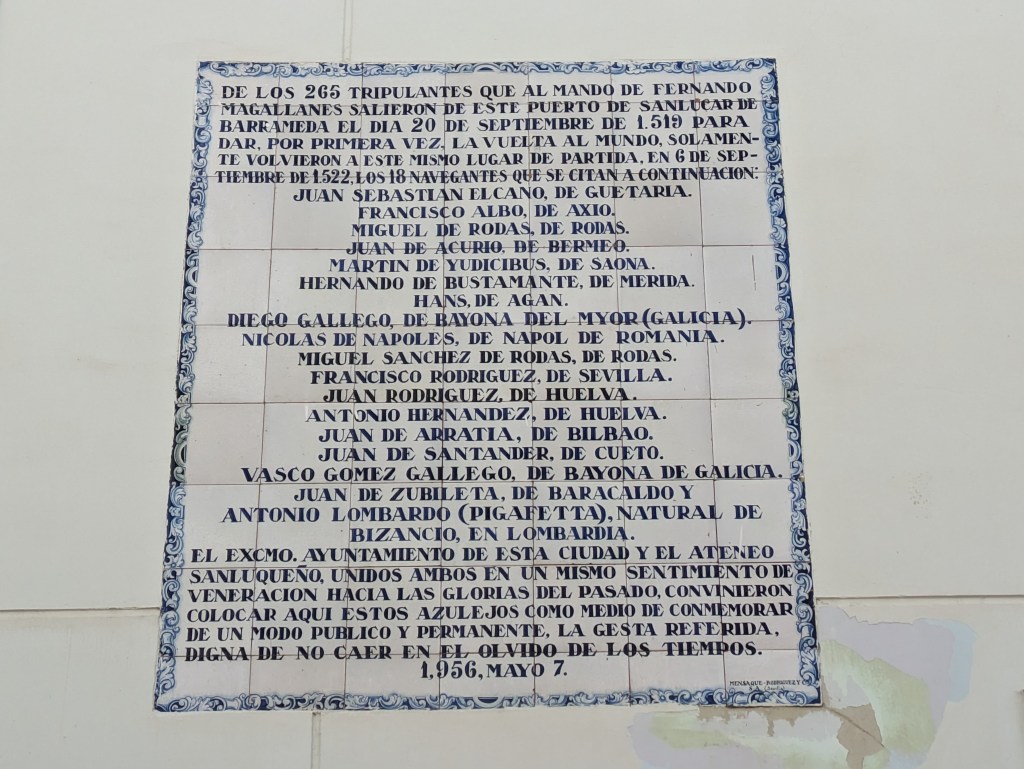 DE LOS 265 TRIPULANTES QUE AL MANDO DE FERNANDO
MAGALLANES SALIERON DE ESTE PUERTO DE SANLUCAR DE
BARRAMEDA EL DIA 20 DE SEPTIEMBRE DE 1.519 PARA
DAR, POR PRIMERA VEZ, LA VUELTA AL MUNDO, SOLAMEN-
TE VOLVIERON A ESTE MISMO LUGAR DE PARTIDA, EN 6 DE SEP-
TIEMBRE DE 1.522, LOS 18 NAVEGANTES QUE SE CITAN A CONTINUACION:
JUAN SEBASTIAN ELCANO, DE GUETARIA.
FRANCISCO ALBO, DE AXIO.
MIGUEL DE RODAS, DE RODAS.
JUAN DE ACURIO, DE BERMEO.
MARTIN DE YUDICIBUS, DE SAONA.
HERNANDO DE BUSTAMANTE, DE MERIDA.
HANS, DE AGAN.
DIEGO GALLEGO, DE BAYONA DEL MYOR (GALICIA).
NICOLAS DE NAPOLES, DE NAPOL DE ROMANIA.
MIGUEL SANCHEZ DE RODAS, DE RODAS.
FRANCISCO RODRIGUEZ, DE SEVILLA.
JUAN RODRIGUEZ, DE HUELVA.
ANTONIO HERNANDEZ, DE HUELVA.
JUAN DE ARRATIA, DE BILBAO.
JUAN DE SANTANDER, DE CUETO.
VASCO GOMEZ GALLEGO, DE BAYONA DE GALICIA.
JUAN DE ZUBILETA, DE BARACALDO Y
ANTONIO LOMBARDO (PIGAFETTA), NATURAL DE
BIZANCIO, EN LOMBARDIA.
EL EXCMO. AYUNTAMIENTO DE ESTA CIUDAD Y EL ATENEO
SANLUQUEÑO, UNIDOS AMBOS EN UN MISMO SENTIMIENTO DE
VENERACION HACIA LAS GLORIAS DEL PASADO, CONVINIERON
COLOCAR AQUI ESTOS AZULEJOS COMO MEDIO DE CONMEMORAR
DE UN MODO PUBLICO Y PERMANENTE, LA GESTA REFERIDA,
DIGNA DE NO CAER EN EL OLVIDO DE LOS TIEMPOS.
1,956, MAYO 7.
MENSAQUE-RODRIGUEZ Y C